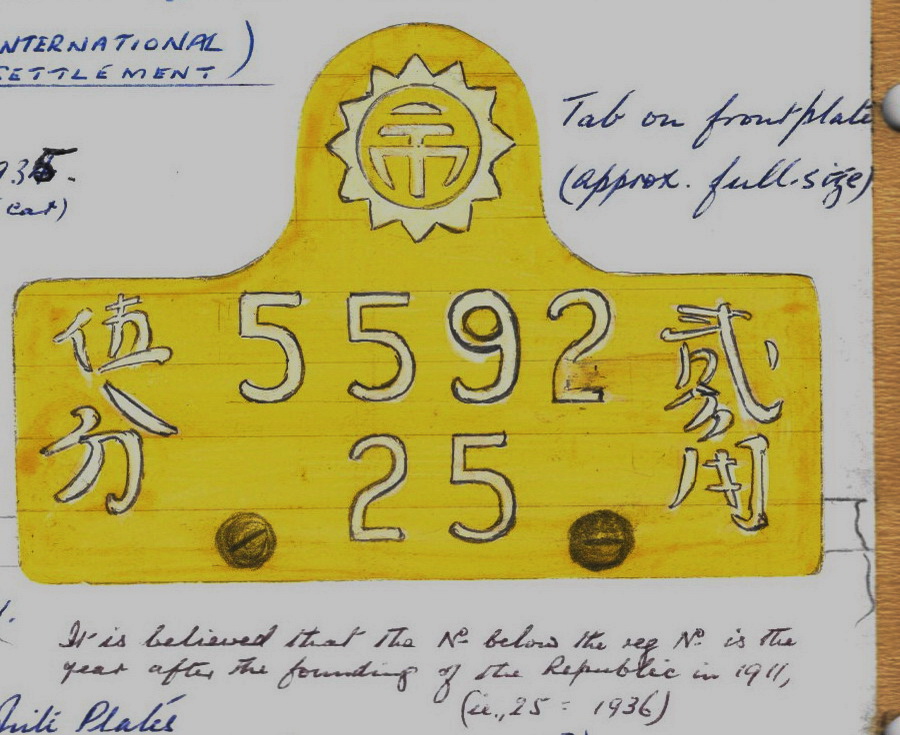 NTERNATIONAL )
SETTLEMENT
935.
car)
Tab on front plate
(approx. full-size)
市
伍分
5592
25
用
It is believed that the No. below the reg No. is the
year after the founding of the Republic in 1911,
(ie., 25 = 1936)
Plates